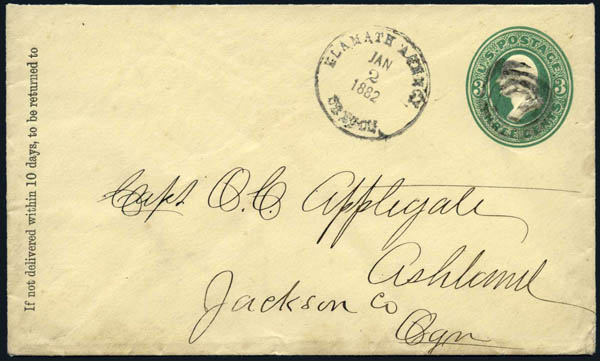 If not delivered within 10 days, to be returned to
KLAMATH AGENCY
JAN
2
1882
OREGON
U.S. POSTAGE
3 3
THREE CENTS
Capt O. C. Applegate
Ashland
Jackson Co
Ogn